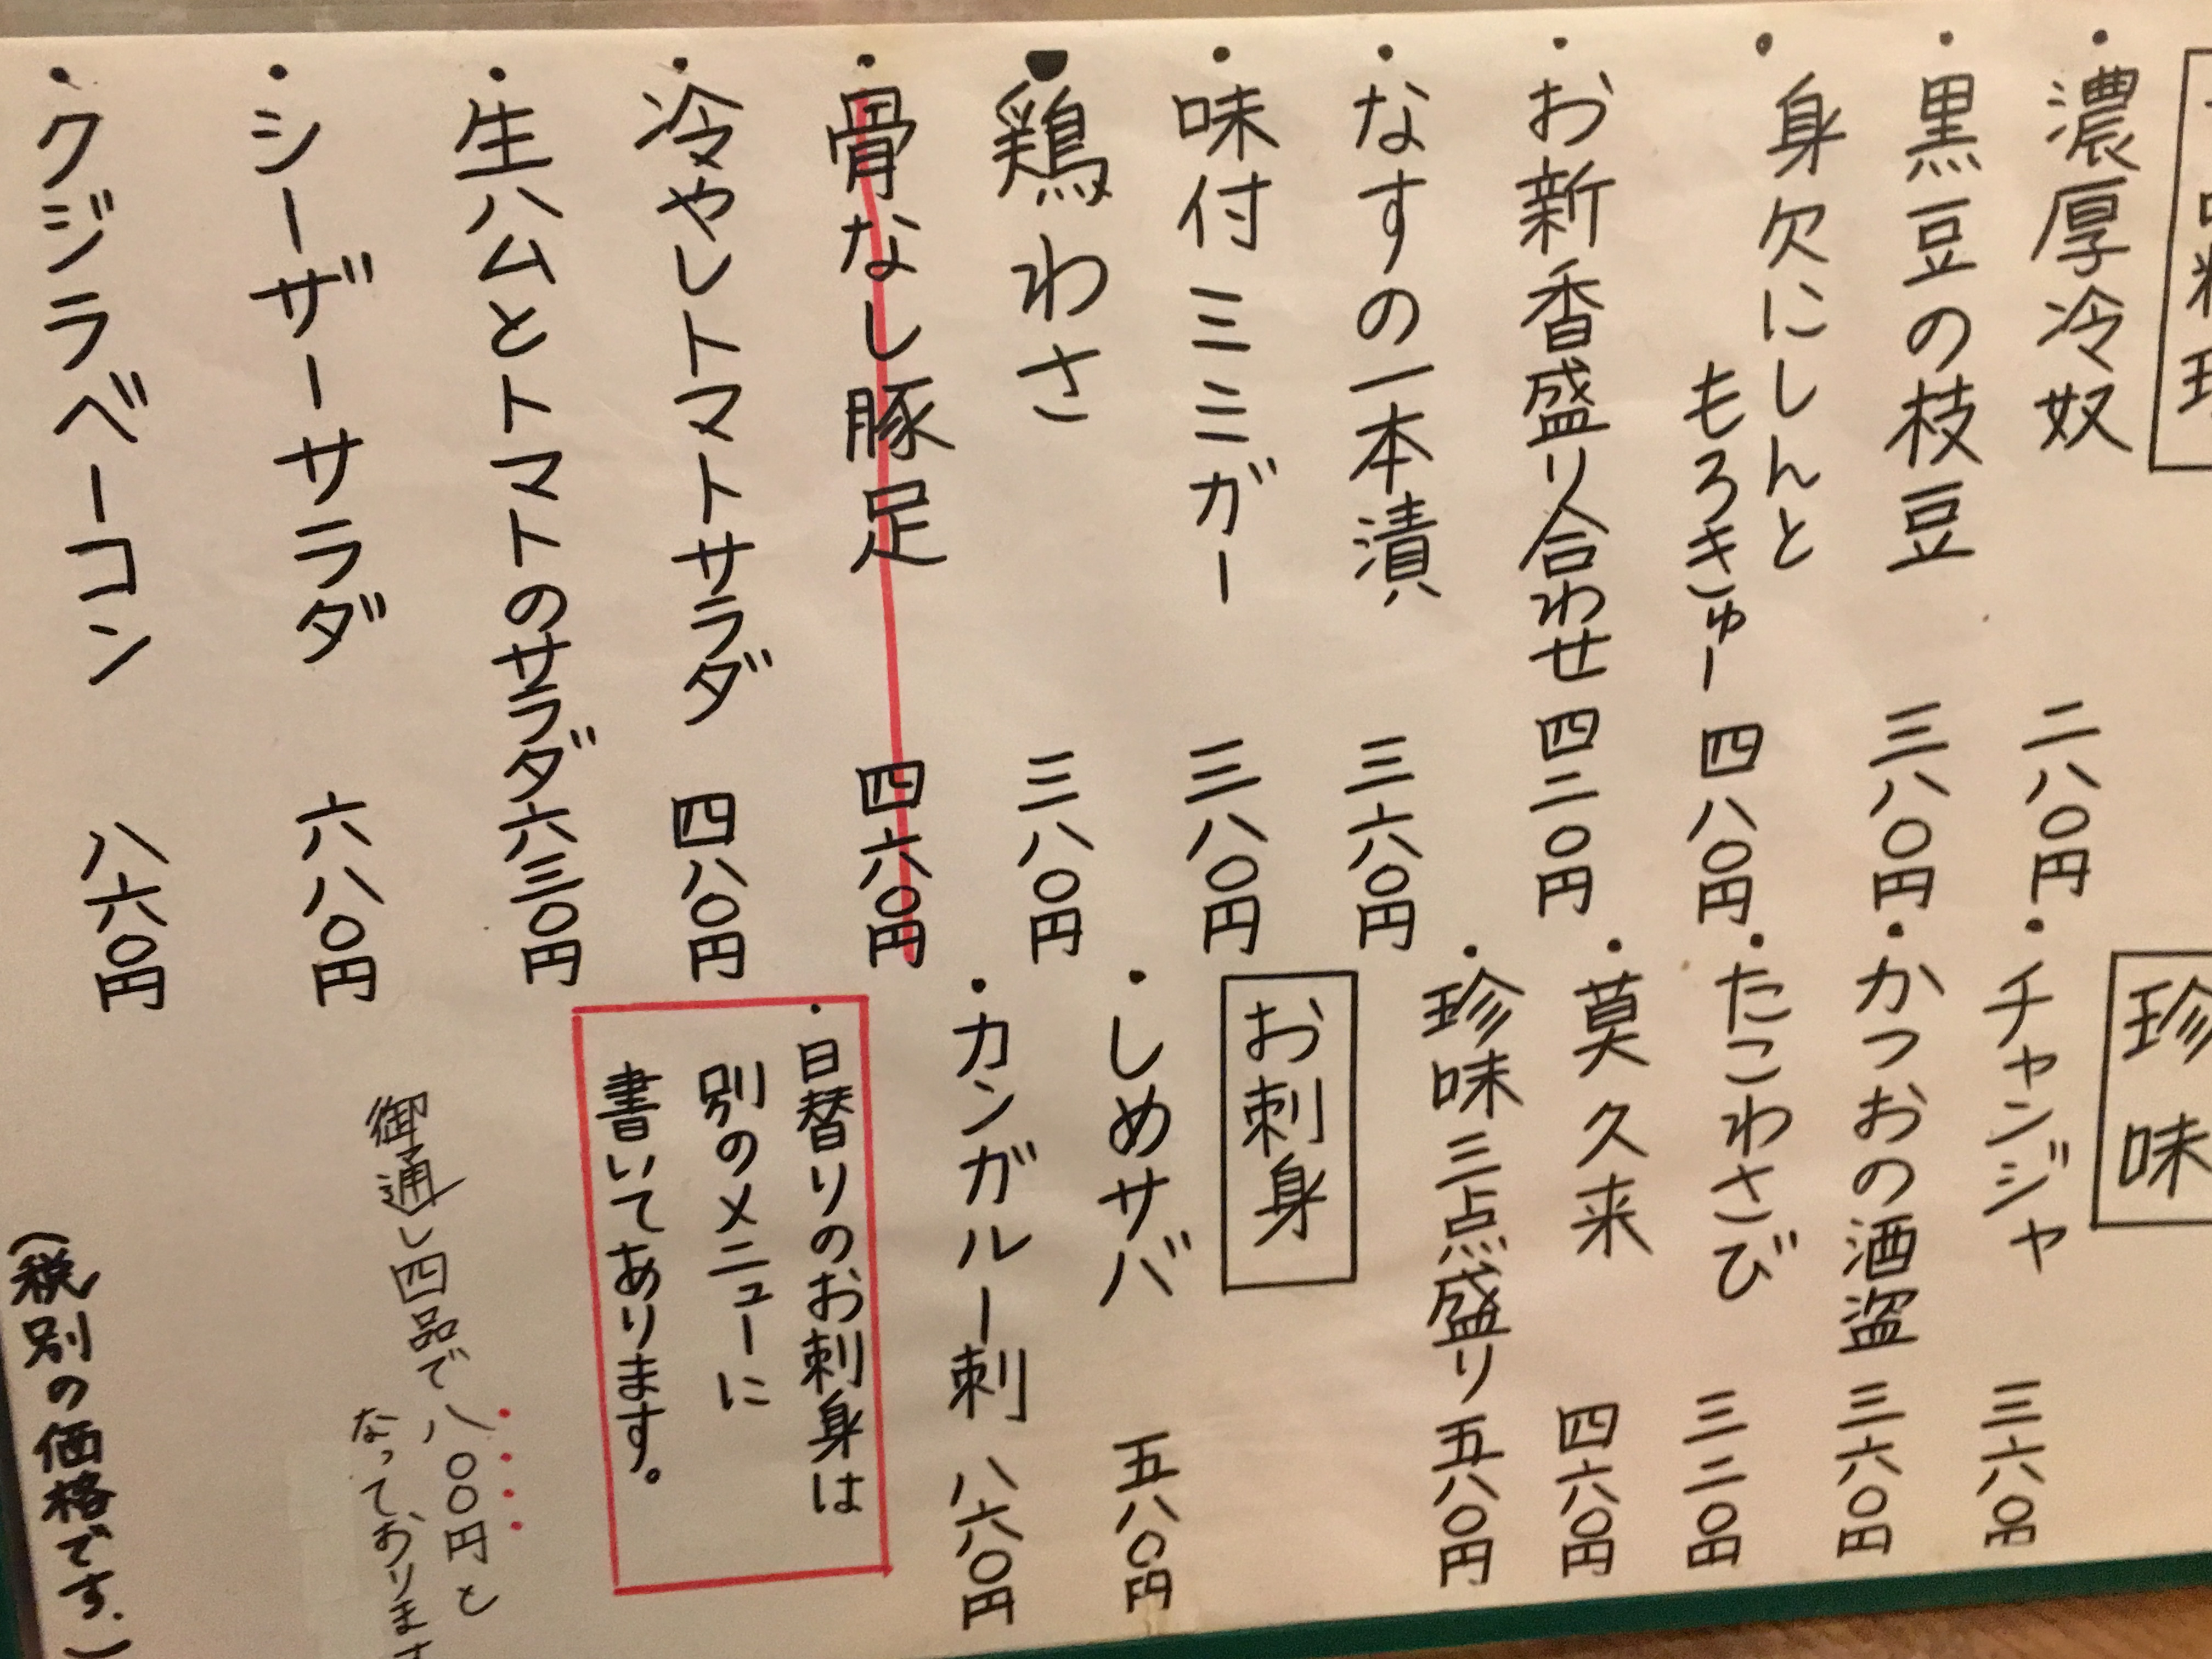 濃厚冷奴 二八〇円
黒豆の枝豆 三八〇円
身欠にしんと
もろきゅー 四八〇円
お新香盛り合わせ 四二〇円
なすの一本漬 三六〇円
味付ミミガー 三八〇円
鶏わさ 三八〇円
骨なし豚足 四六〇円
冷やしトマトサラダ 四八〇円
生ハムとトマトのサラダ 六三〇円
シーザーサラダ 六八〇円
クジラベーコン 八六〇円
珍味
・チャンジャ 三六〇円
・かつおの酒盗 三六〇円
・たこわさび 三二〇円
・莫久来 四六〇円
・珍味三点盛り 五八〇円
お刺身
・しめサバ 五八〇円
・カンガルー刺 八六〇円
・日替りのお刺身は
別のメニューに
書いてあります。
御通し四品で八〇〇円と
なっております
(税別の価格です.)